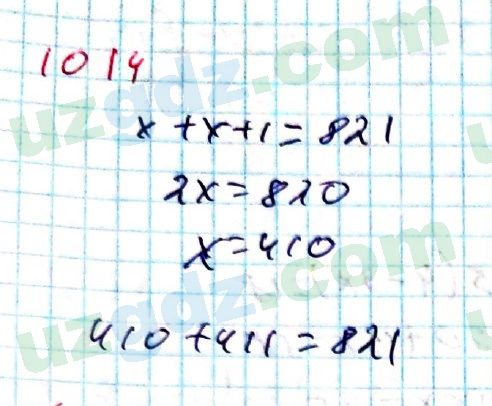 1014
x + x + 1 = 821
2x = 820
x = 410
410 + 411 = 821
uzgdz.com
uzgdz.com
uzgdz.com